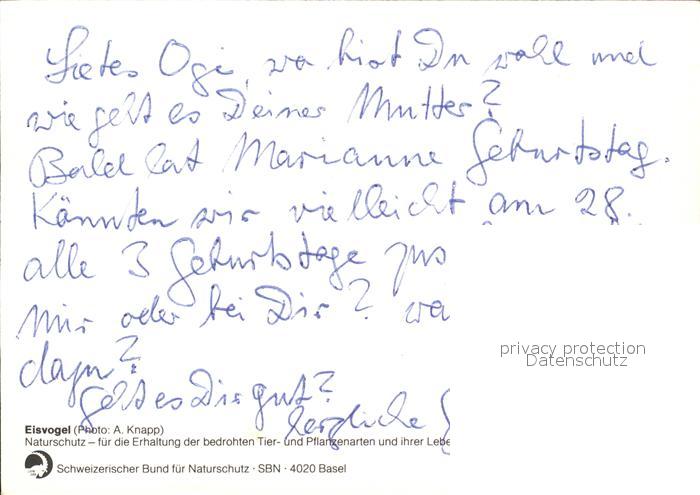 Liebes Ogi, wo bist Du wohl und
wie geht es Deiner Mutter?
Bald hat Marianne Geburtstag.
Könnten wir vielleicht am 28.
alle 3 Geburtstage zus
Mir oder bei Dir? wa
dazu?
Geht es Dir gut?
herzliche
privacy protection
Datenschutz
Eisvogel (Photo: A. Knapp)
Naturschutz – für die Erhaltung der bedrohten Tier- und Pflanzenarten und ihrer Lebe
Schweizerischer Bund für Naturschutz · SBN · 4020 Basel